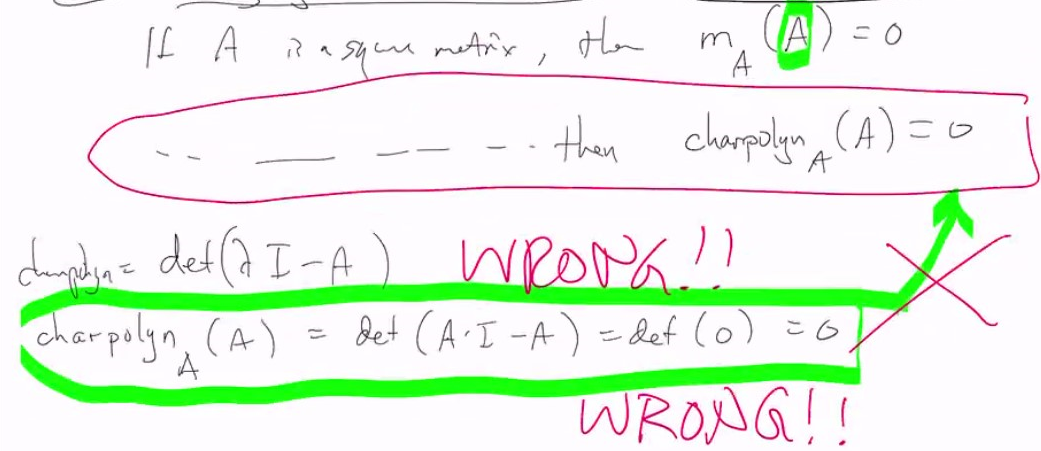 If A is a square matrix, then m_A (A) = 0
-- — — -- then charpolyn_A (A) = 0
charpolyn = det(λI-A) WRONG!!
charpolyn_A (A) = det (A·I-A) = det (0) = 0
WRONG!!